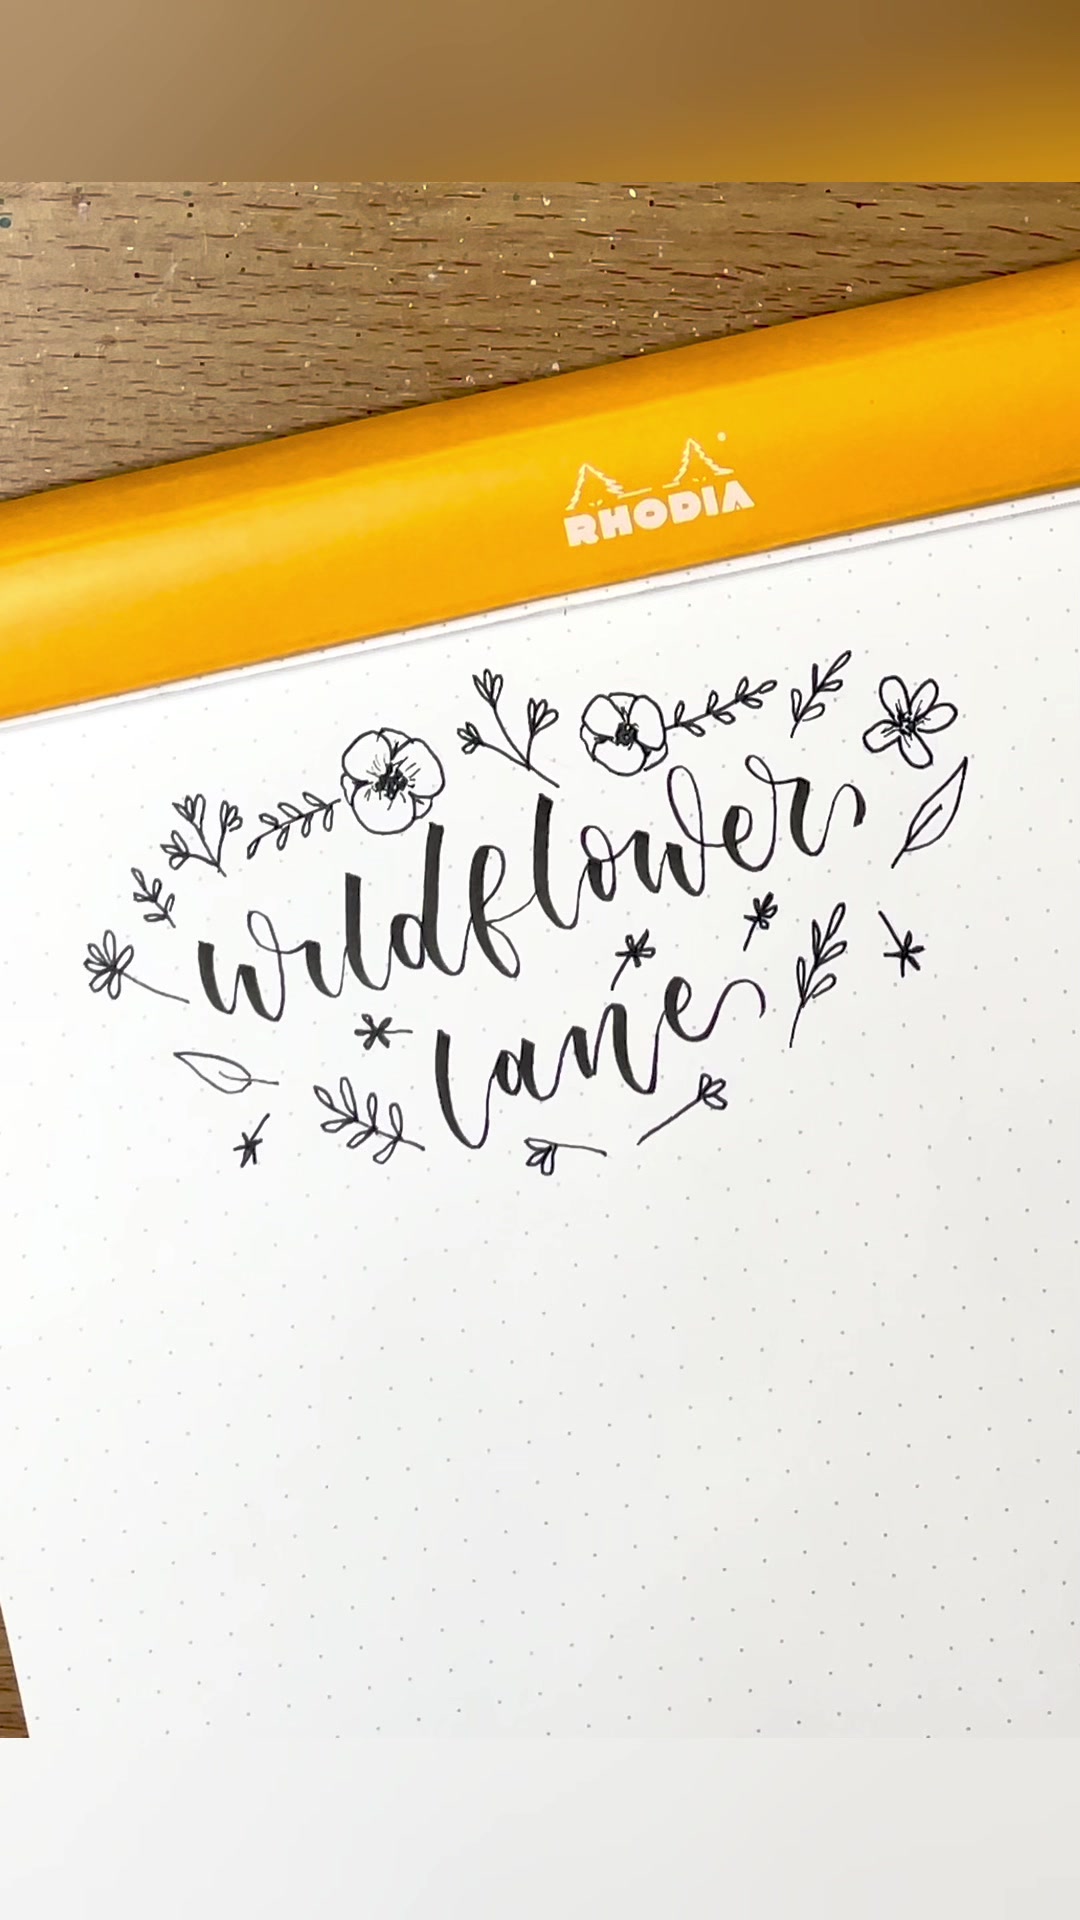 RHODIA
wildflower
lane